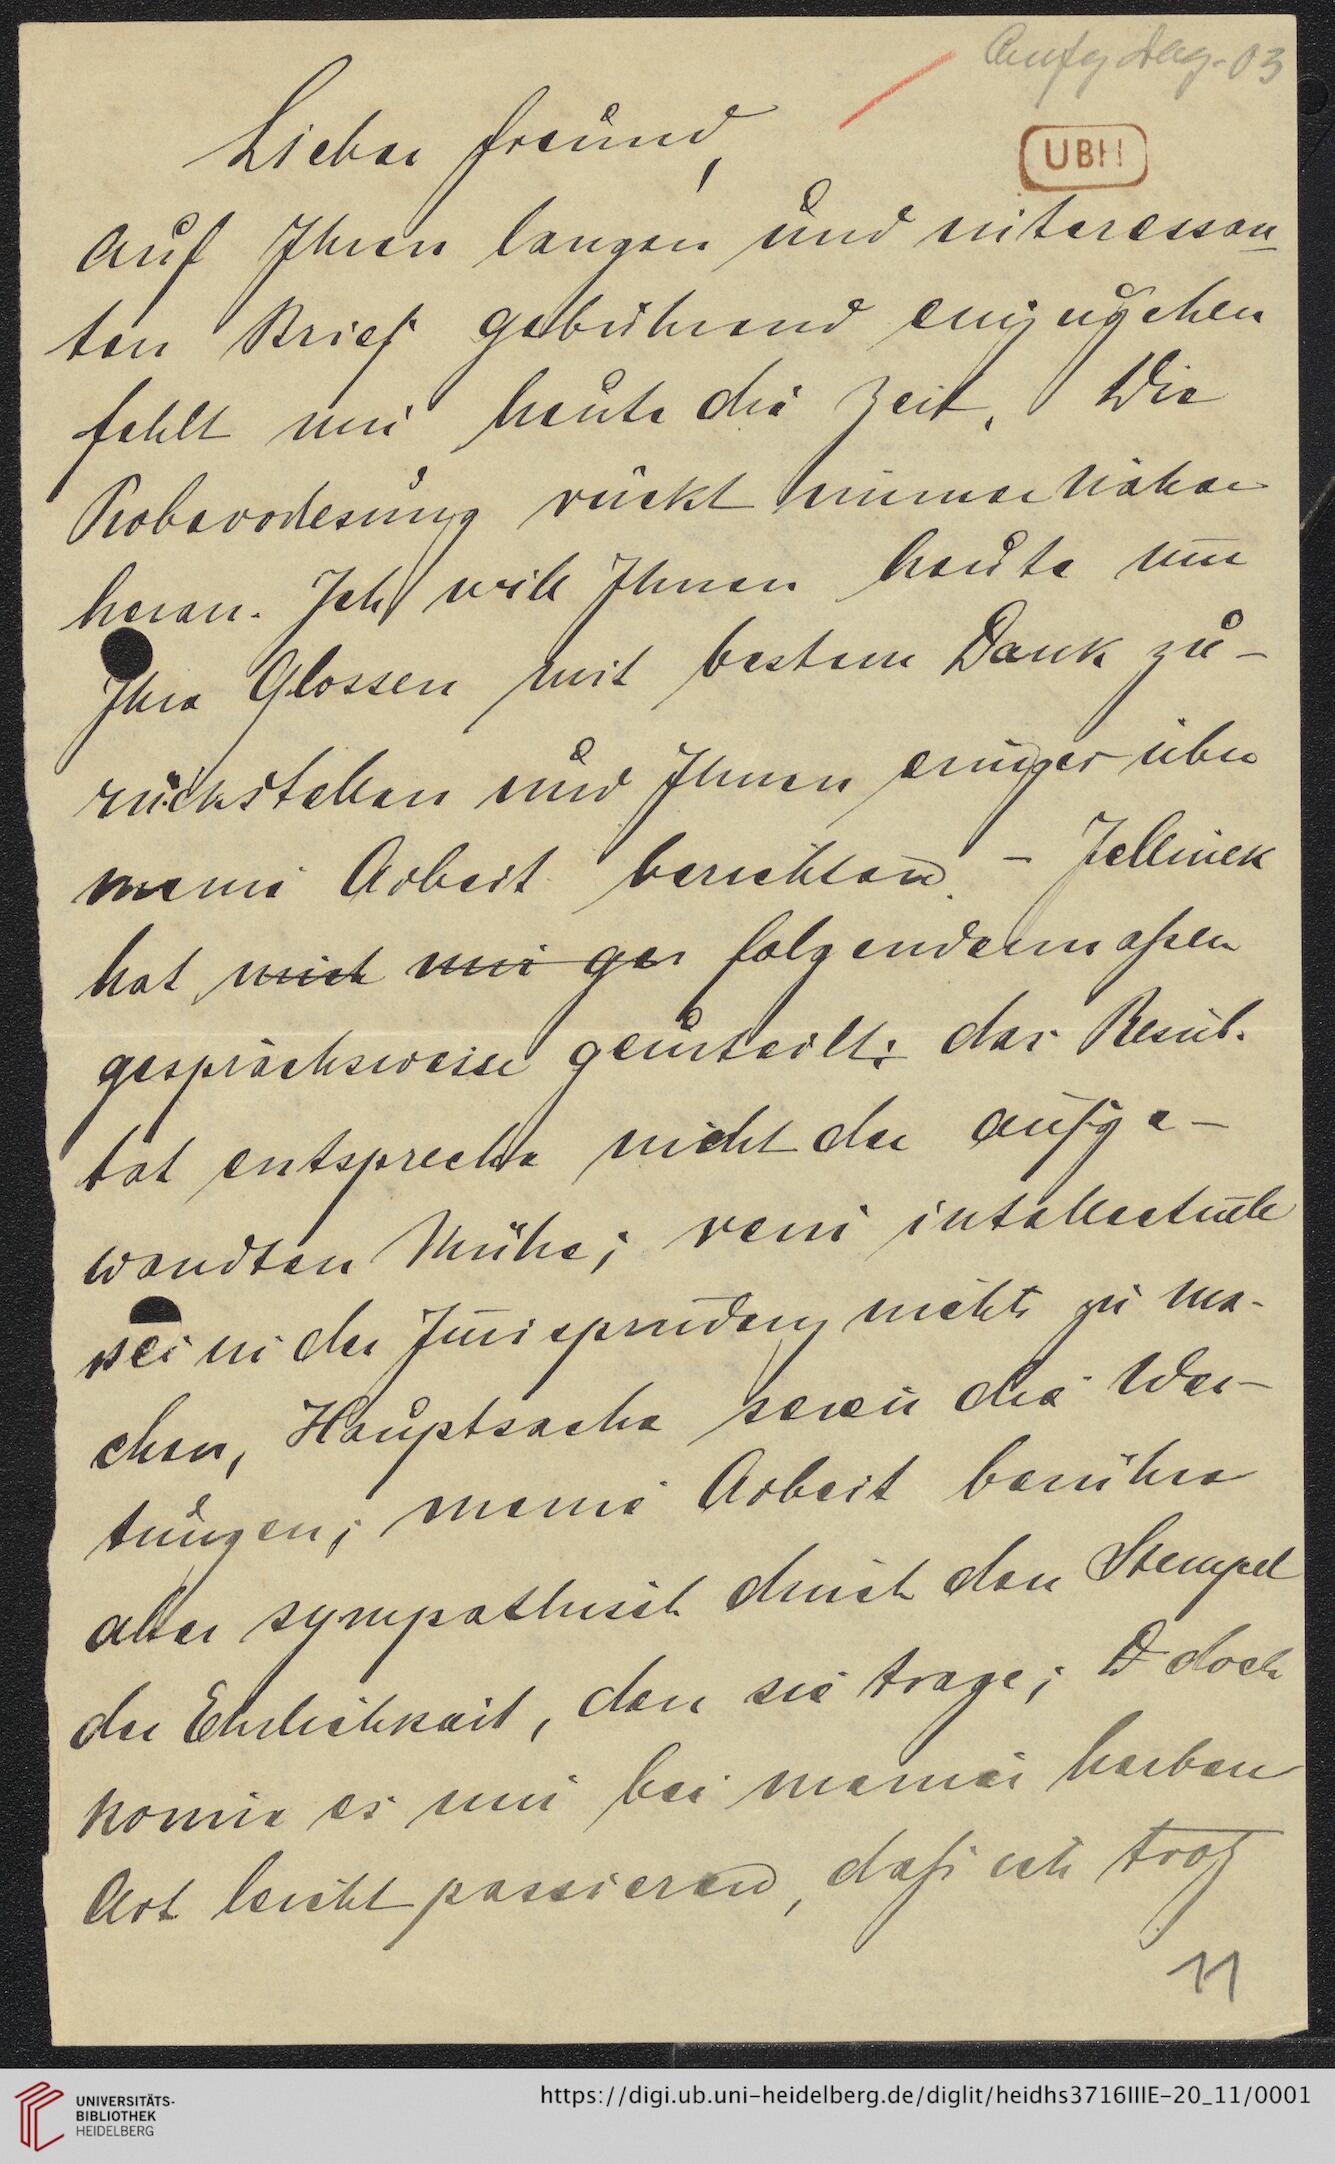 Aufg Dez. 03
UBH
Lieber Freund,
Auf Ihren langen und interessan-
ten Brief gebührend einzugehen
fehlt mir heute die Zeit. Die
Probevorlesung rückt immer näher
heran. Ich will Ihnen heute nur
Ihre Glossen mit bestem Dank zu-
rückstellen und Ihnen einiges über
meine Arbeit berichten. – Jellinek
hat mich mir ges folgendermaßen
gesprächsweise geurteilt: das Resul-
tat entspreche nicht der aufge-
wandten Mühe; rein intellectuell
sei in der Jurisprudenz nichts zu ma-
chen, Hauptsache seien die Wer-
tungen; meine Arbeit berühre
aber sympathisch durch den Stempel
der Ehrlichkeit, den sie trage; D doch
könne es mir bei meiner herben
Art leicht passieren, daß ich trotz
11
UNIVERSITÄTS-
BIBLIOTHEK
HEIDELBERG
https://digi.ub.uni-heidelberg.de/diglit/heidhs3716IIIE-20_11/0001